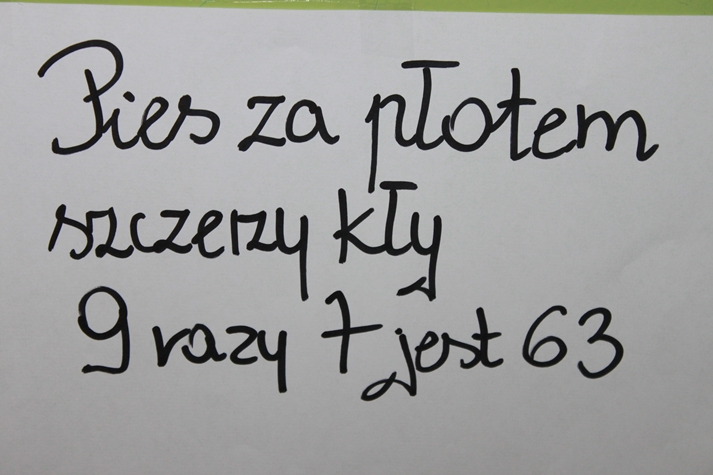 Pies za płotem
szczerzy kły
9 razy 7 jest 63